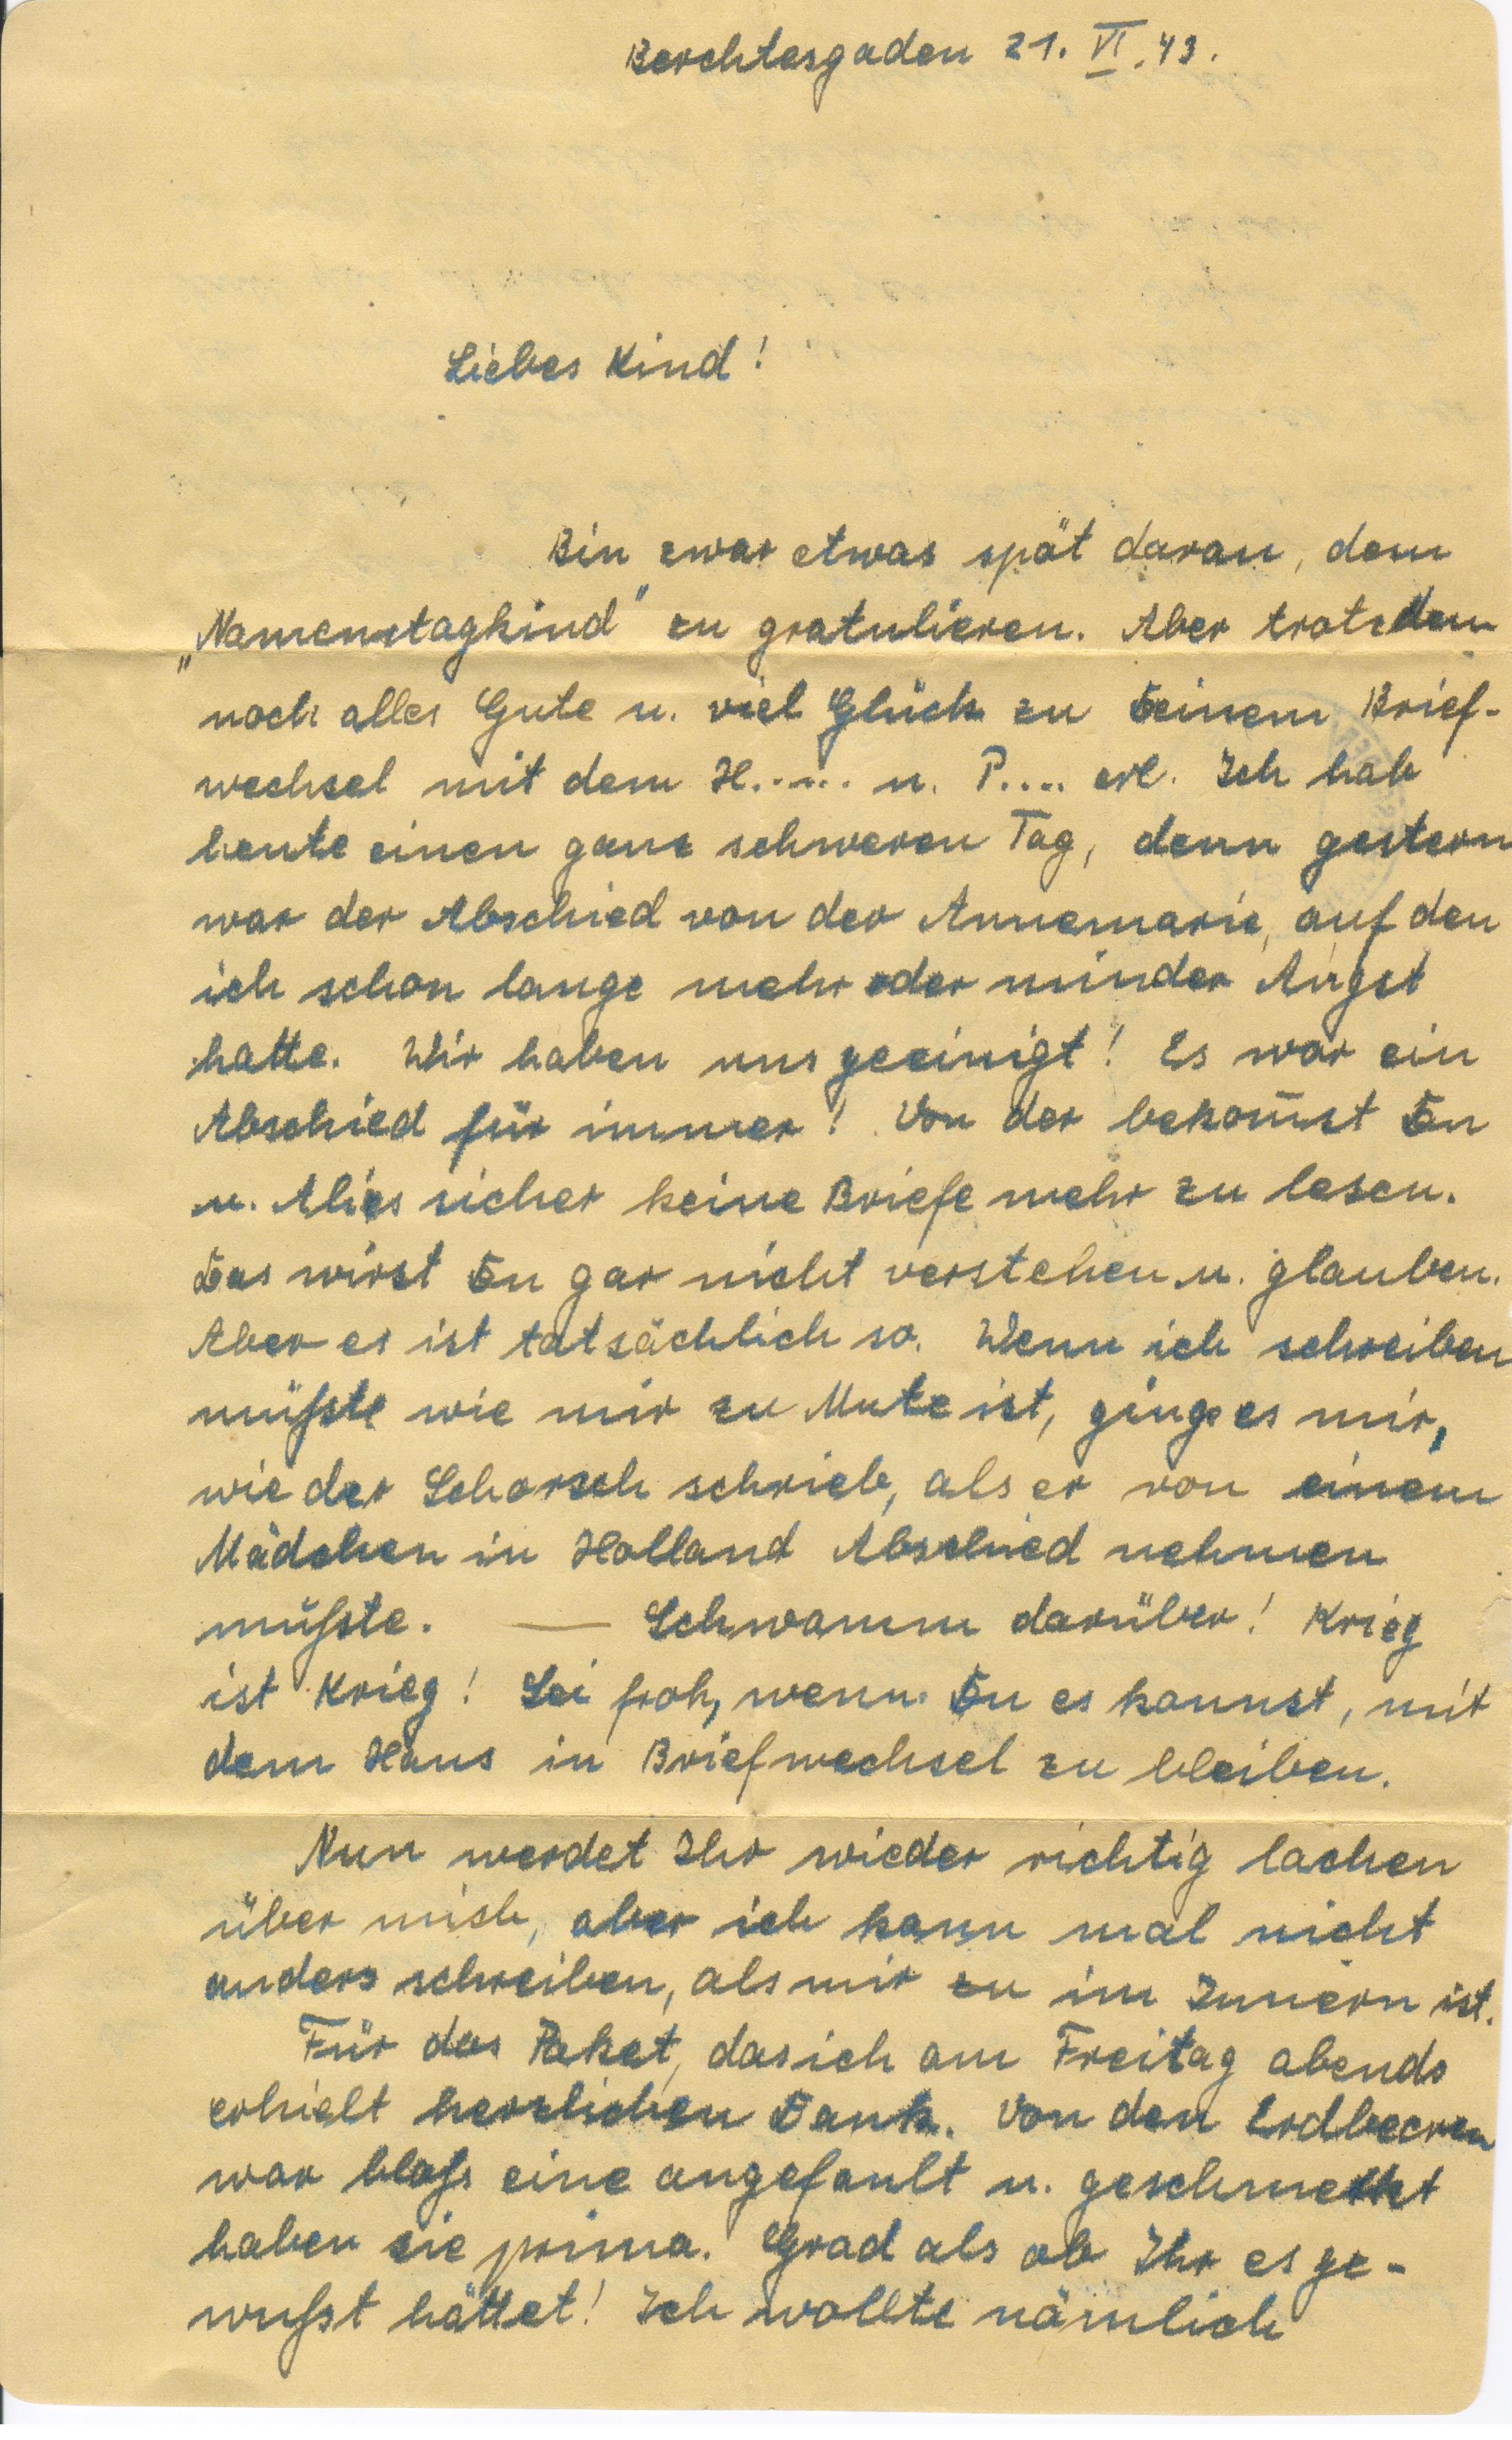 Berchtesgaden 21. VI. 43.
Liebes Kind!
Bin zwar etwas spät daran, dem
„Namenstagkind" zu gratulieren. Aber trotzdem
noch alles Gute u. viel Glück zu Deinem Brief-
wechsel mit dem H..... u. P.... erl. Ich hab
heute einen ganz schweren Tag, denn gestern
war der Abschied von der Annemarie, auf den
ich schon lange mehr oder minder Angst
hatte. Wir haben uns geeinigt! Es war ein
Abschied für immer! Von der bekom̅st Du
u. Alies sicher keine Briefe mehr zu lesen.
Das wirst Du gar nicht verstehen u. glauben.
Aber es ist tatsächlich so. Wenn ich schreiben
müßte wie mir zu Mute ist, ginge es mir,
wie der Schorsch schrieb, als er von einem
Mädchen in Holland Abschied nehmen
mußte. — Schwamm darüber! Krieg
ist Krieg! Sei froh, wenn Du es kannst, mit
dem Hans in Briefwechsel zu bleiben.
Nun werdet Ihr wieder richtig lachen
über mich, aber ich kann mal nicht
anders schreiben, als mir zu im Innern ist.
Für das Paket, das ich am Freitag abends
erhielt herzlichen Dank. Von den Erdbeeren
war bloß eine angefault u. geschmeckt
haben sie prima. Grad als ob Ihr es ge-
wußt hättet! Ich wollte nämlich